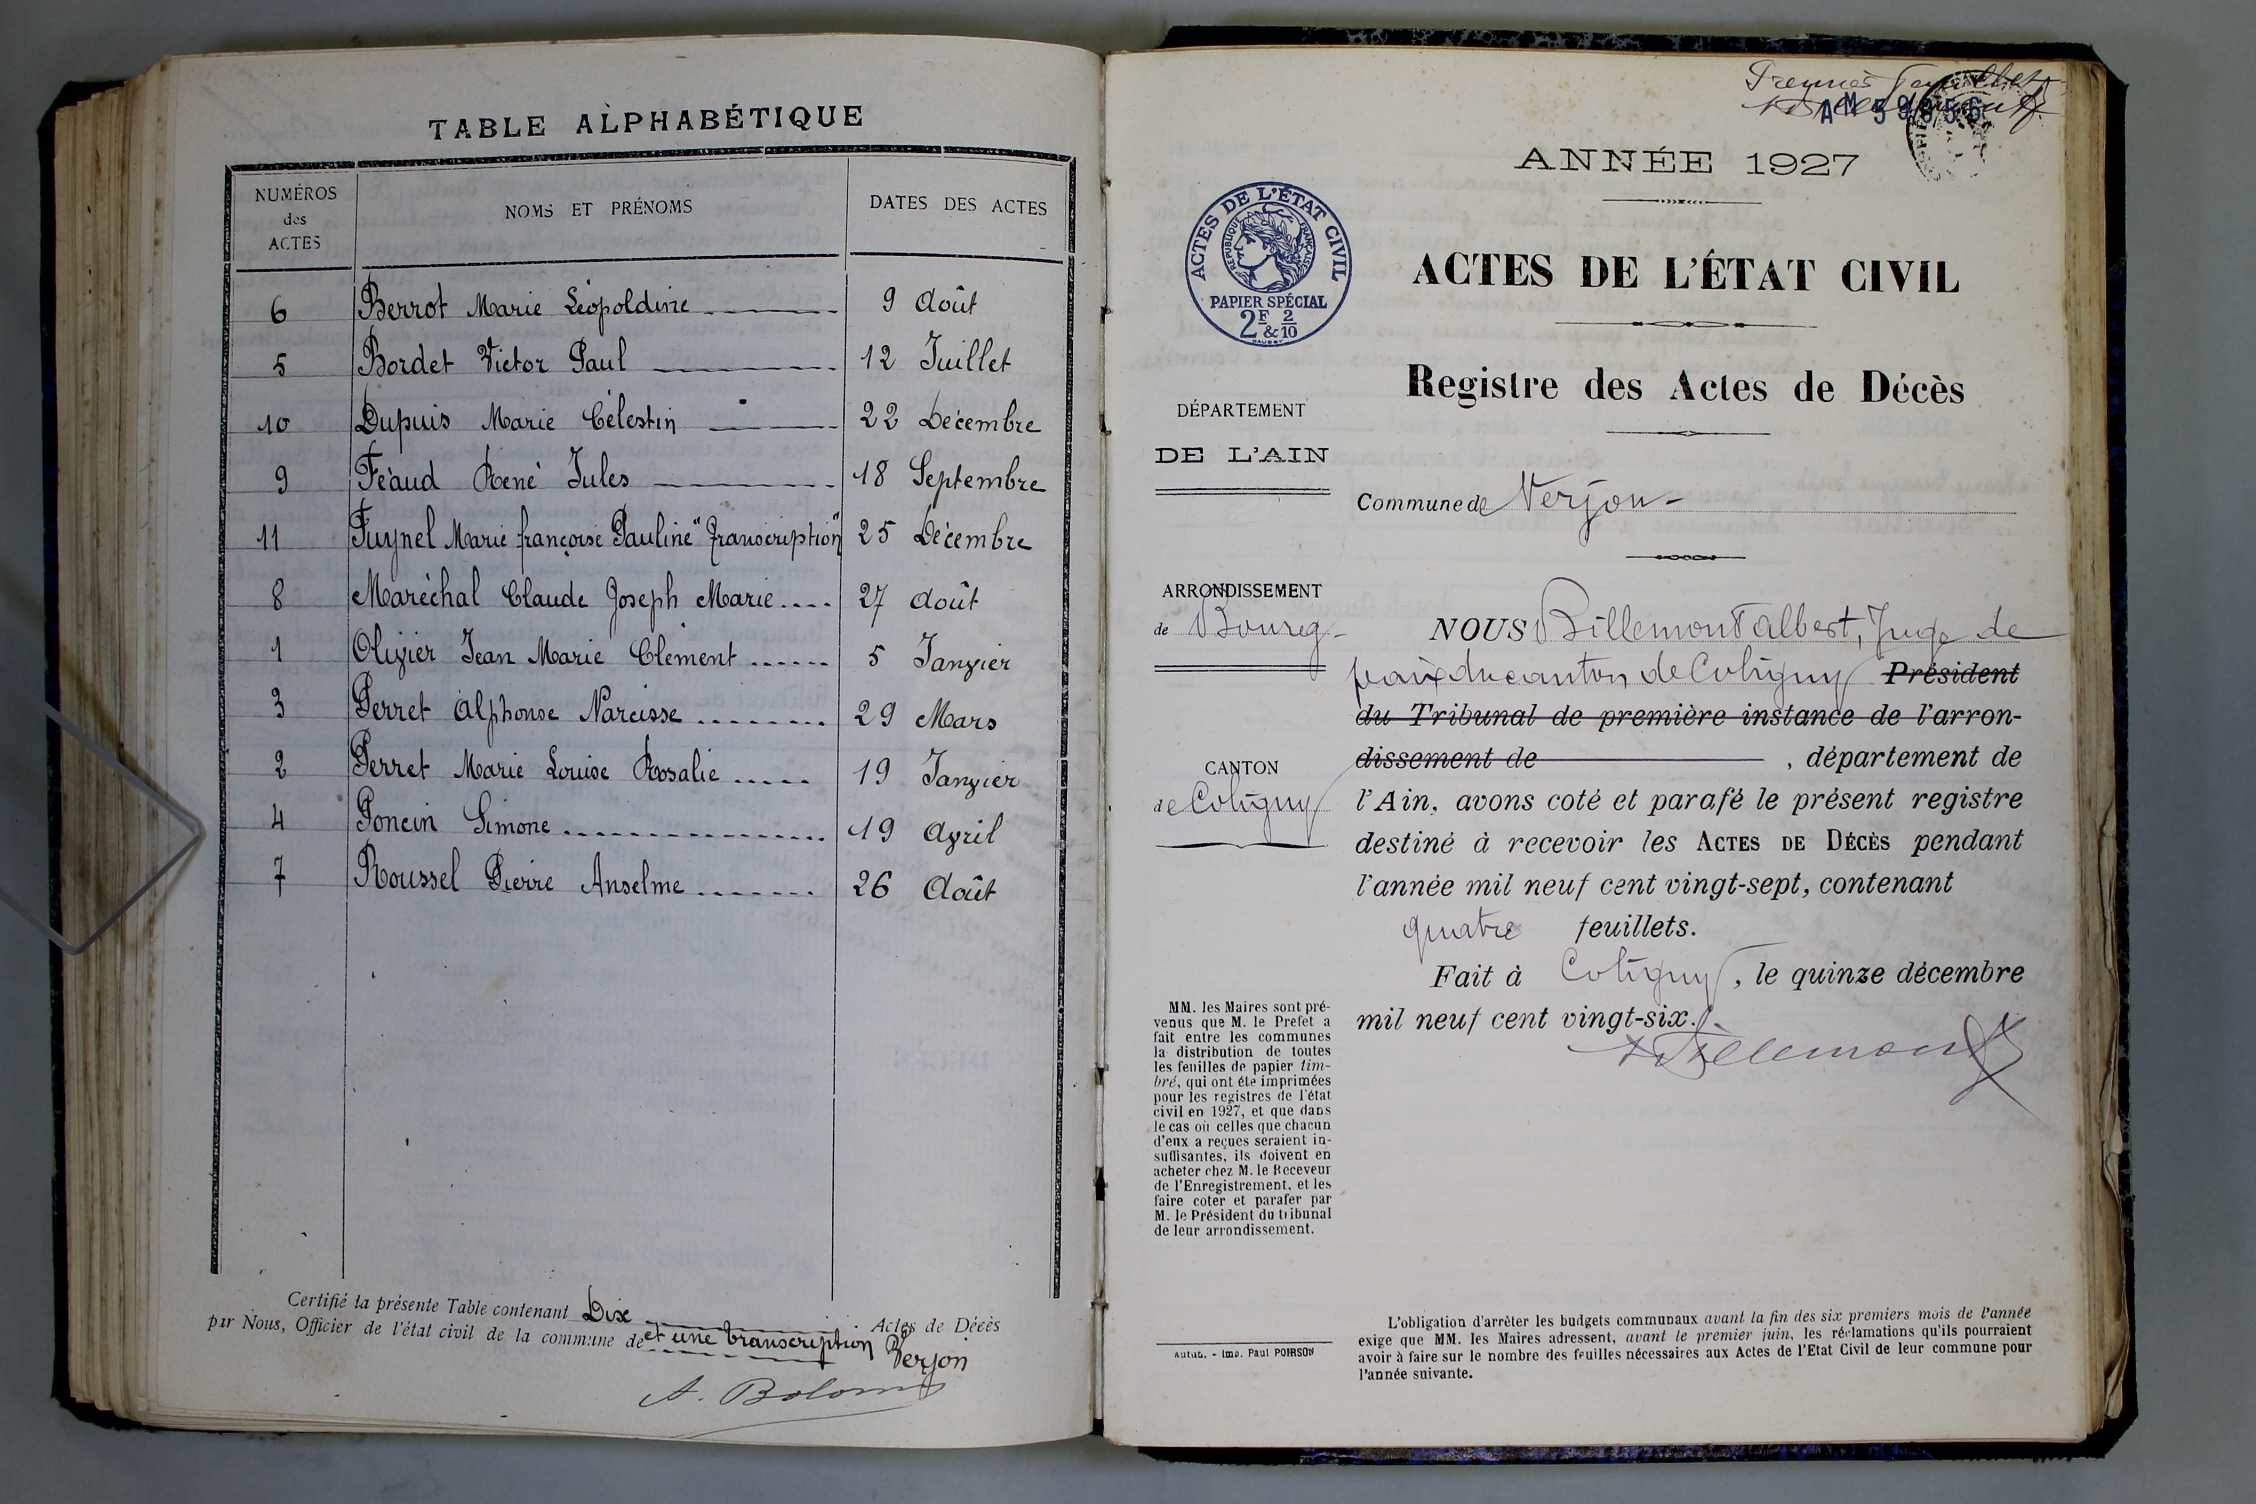 TABLE ALPHABÉTIQUE
NUMÉROS des ACTES NOMS ET PRÉNOMS DATES DES ACTES
6 Berrot Marie Léopoldine 9 Août
5 Bordet Victor Paul 12 Juillet
10 Dupuis Marie Célestin 22 Décembre
9 Féaud René Jules 18 Septembre
11 Fuynel Marie françoise Pauline "Transcription" 25 Décembre
8 Maréchal Claude Joseph Marie 27 Août
1 Olivier Jean Marie Clément 5 Janvier
3 Perret Alphonse Narcisse 29 Mars
2 Perret Marie Louise Rosalie 19 Janvier
4 Poncin Simone 19 Avril
7 Roussel Pierre Anselme 26 Août
Certifié la présente Table contenant Dix Actes de Décès
et une transcription
par Nous, Officier de l'état civil de la commune de Verjon
A. Bolomy
Premier feuillet
AM
ANNÉE 1927
ACTES DE L'ÉTAT CIVIL
RÉPUBLIQUE FRANÇAISE
PAPIER SPÉCIAL
2F & 2/10
ACTES DE L'ÉTAT CIVIL
Registre des Actes de Décès
DÉPARTEMENT
DE L'AIN
Commune de Verjon
ARRONDISSEMENT
de Bourg
CANTON
de Coligny
NOUS Billemont Albert, Juge de
paix du canton de Coligny Président
du Tribunal de première instance de l'arron-
dissement de , département de
l'Ain, avons coté et parafé le présent registre
destiné à recevoir les ACTES DE DÉCÈS pendant
l'année mil neuf cent vingt-sept, contenant
quatre feuillets.
Fait à Coligny, le quinze décembre
mil neuf cent vingt-six.
ABillemont
MM. les Maires sont pré-
venus que M. le Prefet a
fait entre les communes
la distribution de toutes
les feuilles de papier tim-
bré, qui ont été imprimées
pour les registres de l'état
civil en 1927, et que dans
le cas où celles que chacun
d'eux a reçues seraient in-
suffisantes, ils doivent en
acheter chez M. le Receveur
de l'Enregistrement, et les
faire coter et parafer par
M. le Président du tribunal
de leur arrondissement.
Autun. - Imp. Paul POIRSON
L'obligation d'arrêter les budgets communaux avant la fin des six premiers mois de l'année
exige que MM. les Maires adressent, avant le premier juin, les réclamations qu'ils pourraient
avoir à faire sur le nombre des feuilles nécessaires aux Actes de l'Etat Civil de leur commune pour
l'année suivante.